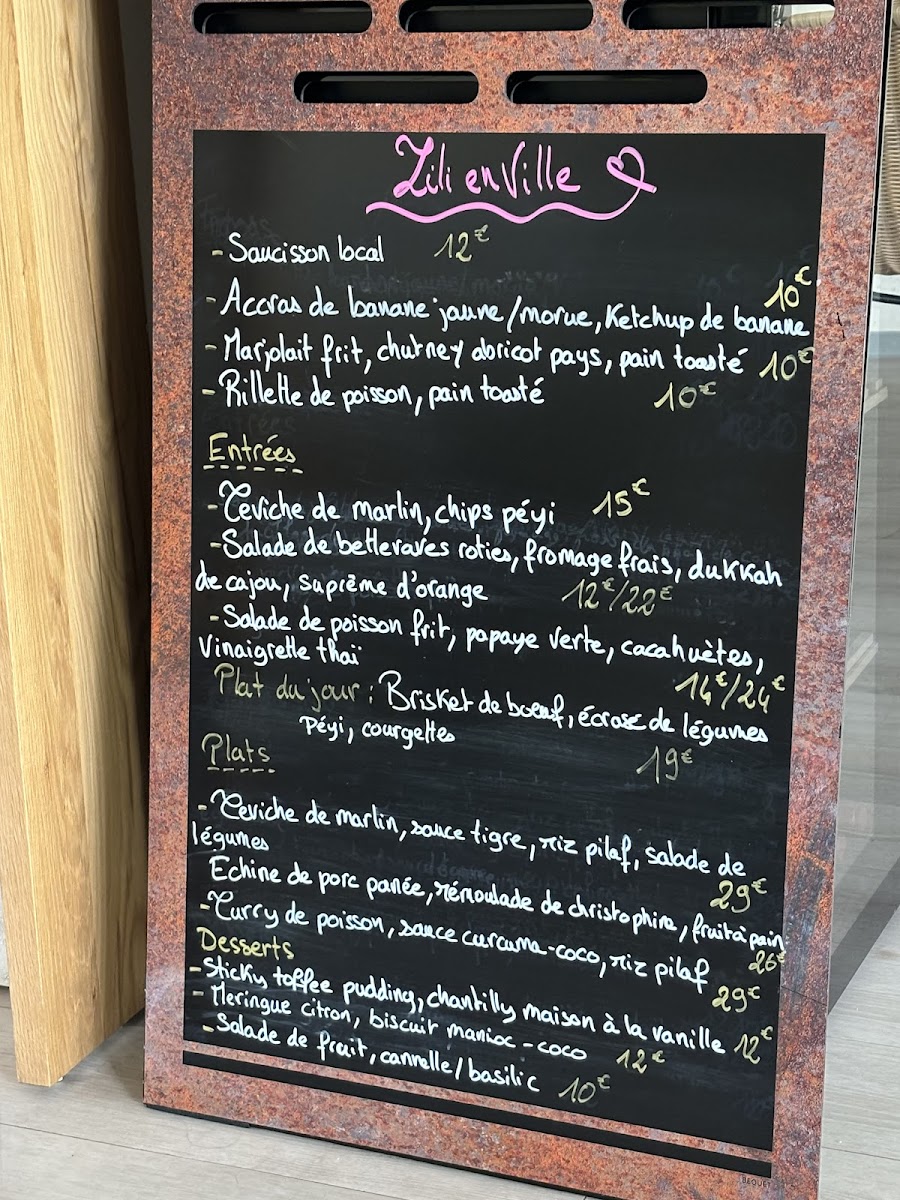 Zili en Ville
- Saucisson local 12€
10€
- Accras de banane jaune/morue, Ketchup de banane
- Marjolait frit, chutney abricot pays, pain toasté 10€
- Rillette de poisson, pain toasté 10€
Entrées
- Ceviche de marlin, chips péyi 15€
- Salade de betteraves roties, fromage frais, dukkah
de cajou, suprême d'orange 12€/22€
- Salade de poisson frit, papaye verte, cacahuètes,
Vinaigrette thaï 14€/24€
Plat du jour : Brisket de boeuf, écrasé de légumes
Péyi, courgettes 19€
Plats
- Ceviche de marlin, sauce tigre, riz pilaf, salade de
légumes 29€
Echine de porc panée, rémoulade de christophine, fruit à pain
26€
- Curry de poisson, sauce curcuma-coco, riz pilaf 29€
Desserts
- Sticky toffee pudding, chantilly maison à la vanille 12€
- Meringue citron, biscuit manioc-coco 12€
- Salade de fruit, cannelle/basilic 10€
BEQUET